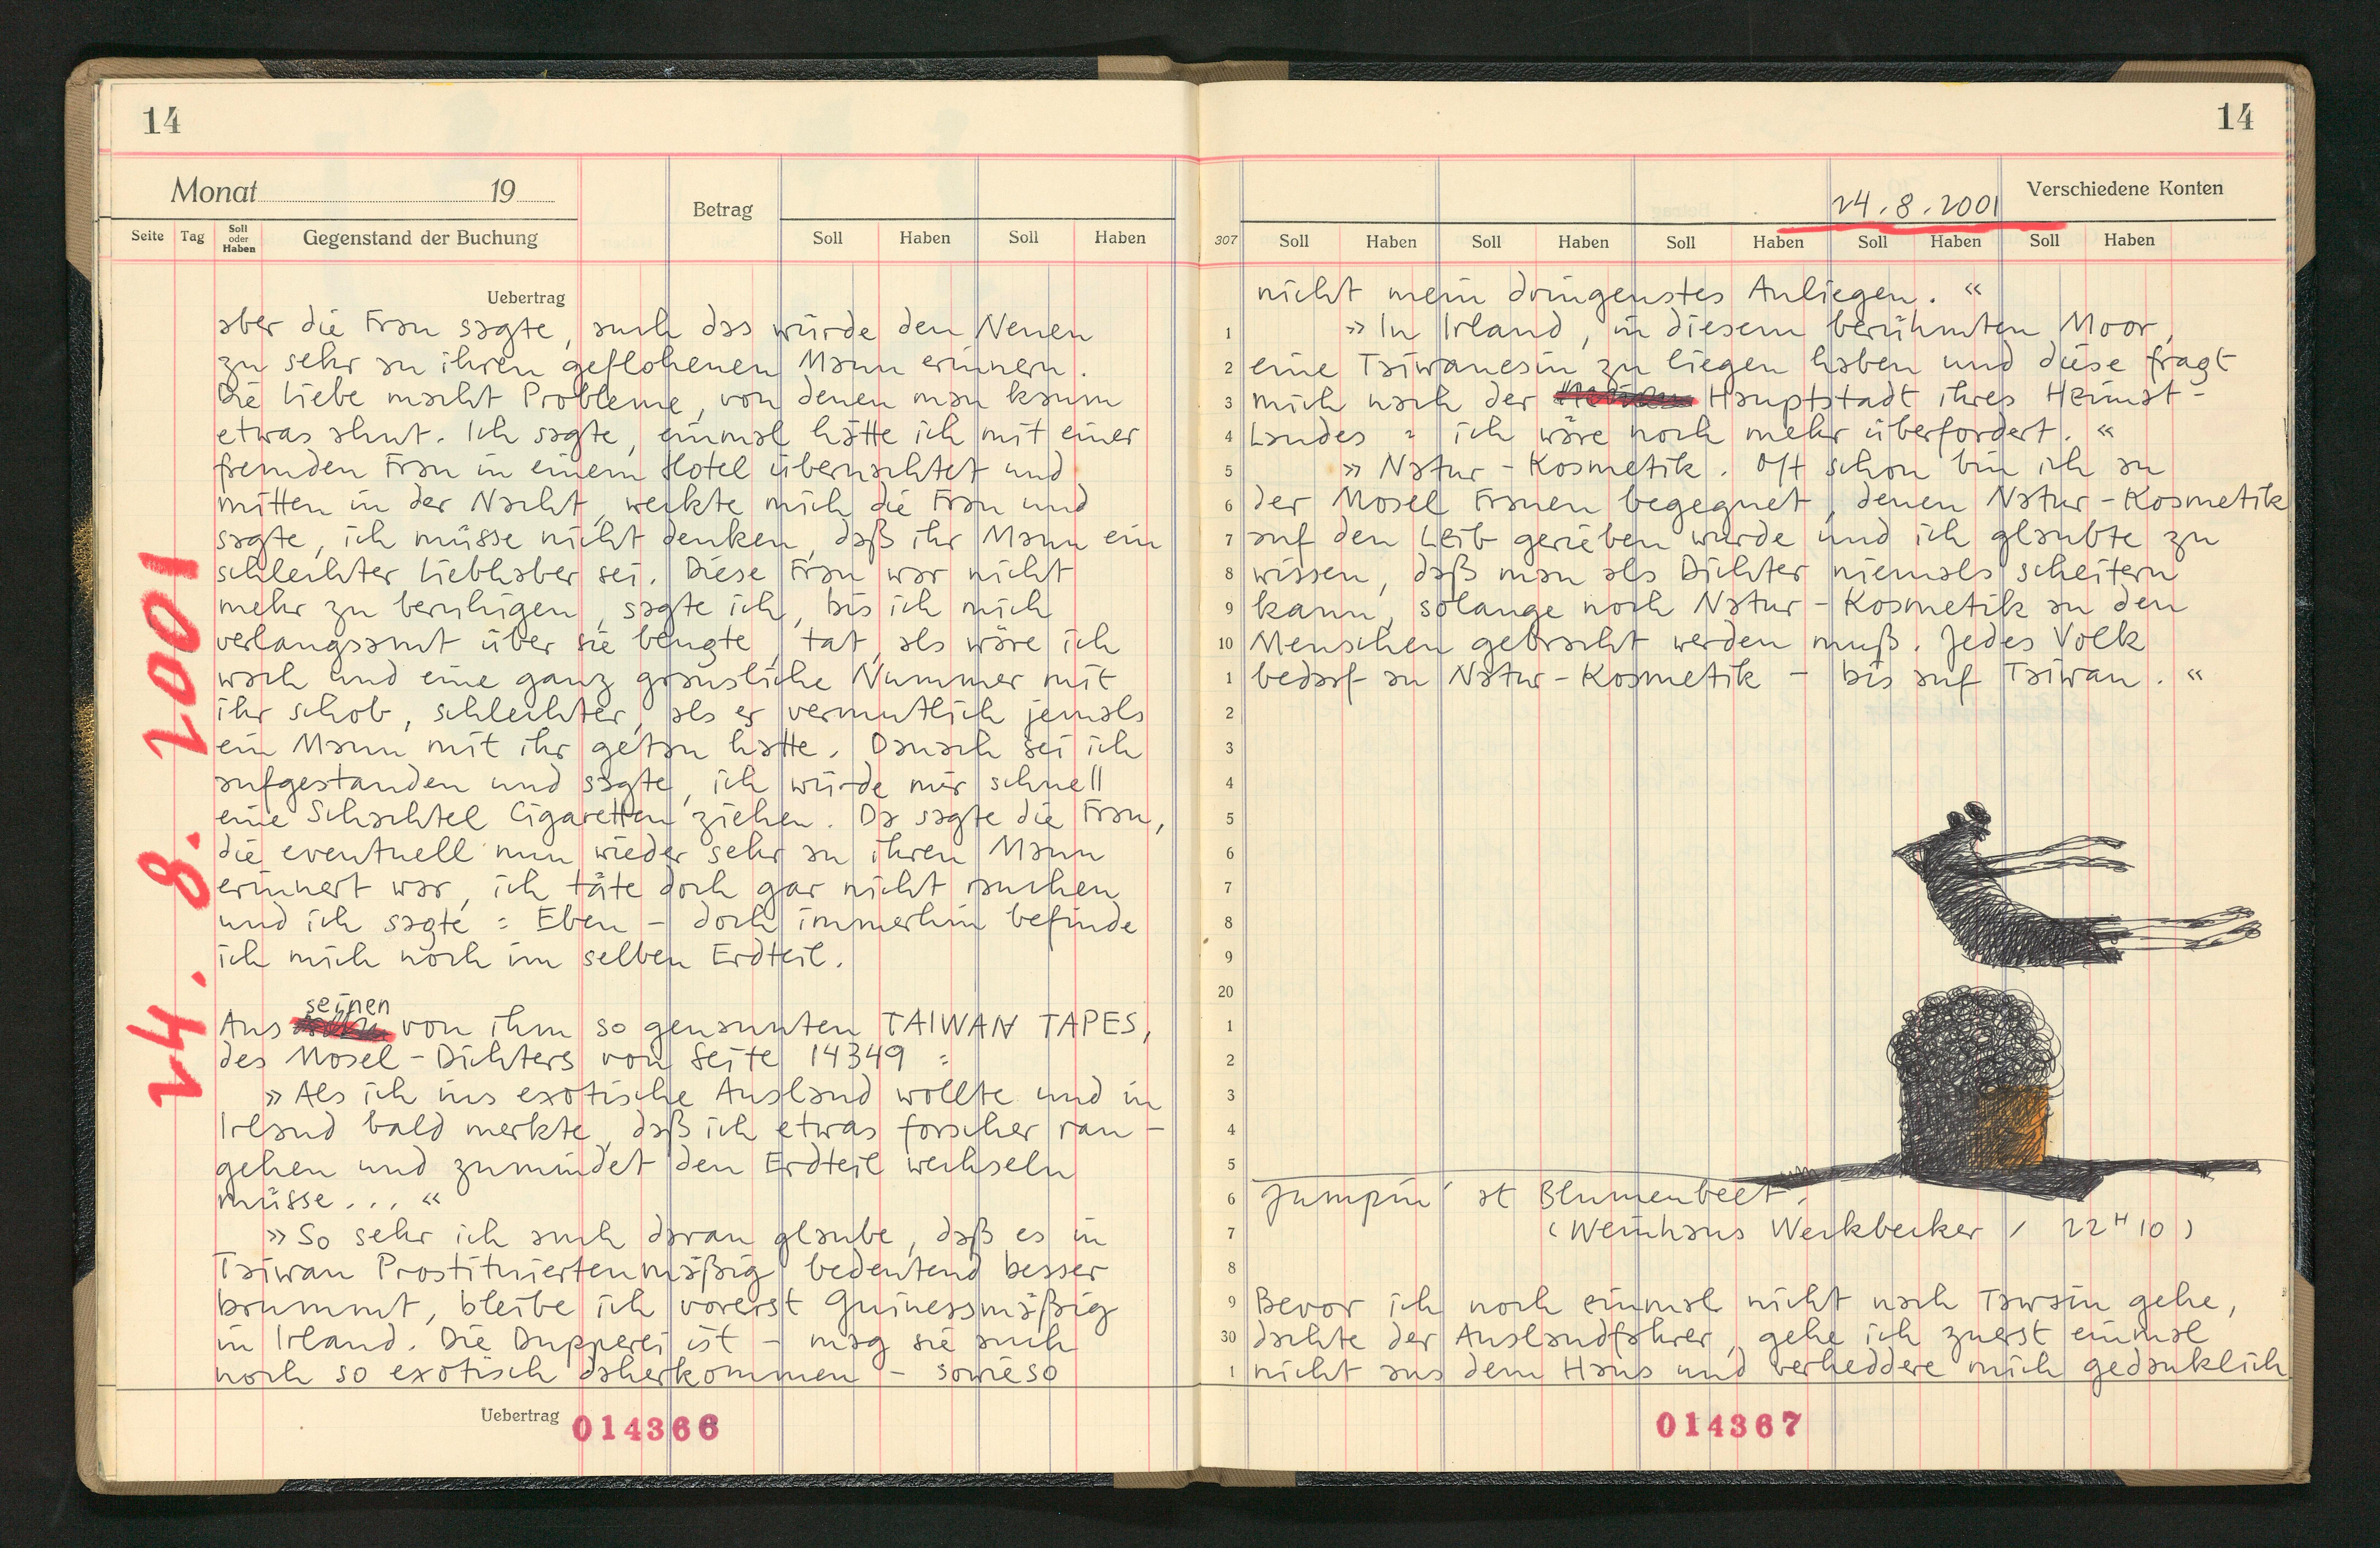 14
Monat 19
Betrag
Seite Tag Soll oder Haben Gegenstand der Buchung Soll Haben Soll Haben
Uebertrag
24. 8. 2001
aber die Frau sagte, auch das würde den Neuen
zu sehr an ihren geflohenen Mann erinnern.
Die Liebe macht Probleme, von denen man kaum
etwas ahnt. Ich sagte, einmal hätte ich mit einer
fremden Frau in einem Hotel übernachtet und
mitten in der Nacht, weckte mich die Frau und
sagte, ich müsse nicht denken, daß ihr Mann ein
schlechter Liebhaber sei. Diese Frau war nicht
mehr zu beruhigen, sagte ich, bis ich mich
verlangsamt über sie beugte, tat, als wäre ich
wach und eine ganz grausliche Nummer mit
ihr schob, schlechter, als er vermutlich jemals
ein Mann mit ihr getan hatte. Danach sei ich
aufgestanden und sagte, ich würde mir schnell
eine Schachtel Cigaretten ziehen. Da sagte die Frau,
die eventuell nun wieder sehr an ihren Mann
erinnert war, ich täte doch gar nicht rauchen
und ich sagte: Eben – doch immerhin befinde
ich mich noch im selben Erdteil.
seinen
Aus von ihm so genannten TAIWAN TAPES,
des Mosel-Dichters von Seite 14349 :
»Als ich ins exotische Ausland wollte und in
Irland bald merkte, daß ich etwas forscher ran-
gehen und zumindet den Erdteil wechseln
müsse... «
»So sehr ich auch daran glaube, daß es in
Taiwan Prostituiertenmäßig bedeutend besser
brummt, bleibe ich vorerst Guinessmäßig
in Irland. Die Dupperei ist – mag sie auch
noch so exotisch daherkommen – sowieso
Uebertrag 014366
14
24.8.2001 Verschiedene Konten
307 Soll Haben Soll Haben Soll Haben Soll Haben Soll Haben
nicht mein dringenstes Anliegen. «
1 »In Irland, in diesem berühmten Moor,
2 eine Taiwanesin zu liegen haben und diese fragt
3 mich nach der Hauptstadt ihres Heimat-
4 Landes : ich wäre noch mehr überfordert. «
5 »Natur-Kosmetik. Oft schon bin ich an
6 der Mosel Frauen begegnet, denen Natur-Kosmetik
7 auf den Leib gerieben wurde und ich glaubte zu
8 wissen, daß man als Dichter niemals scheitern
9 kann, solange noch Natur-Kosmetik an den
10 Menschen gebracht werden muß. Jedes Volk
1 bedarf an Natur-Kosmetik – bis auf Taiwan. «
2
3
4
5
6
7
8
9
20
1
2
3
4
5
6 Jumpin' at Blumenbeet.
7 (Weinhaus Weckbecker / 22 H 10)
8
9 Bevor ich noch einmal nicht nach Tawain gehe,
30 dachte der Auslandfahrer, gehe ich zuerst einmal
1 nicht aus dem Haus und verheddere mich gedanklich
014367